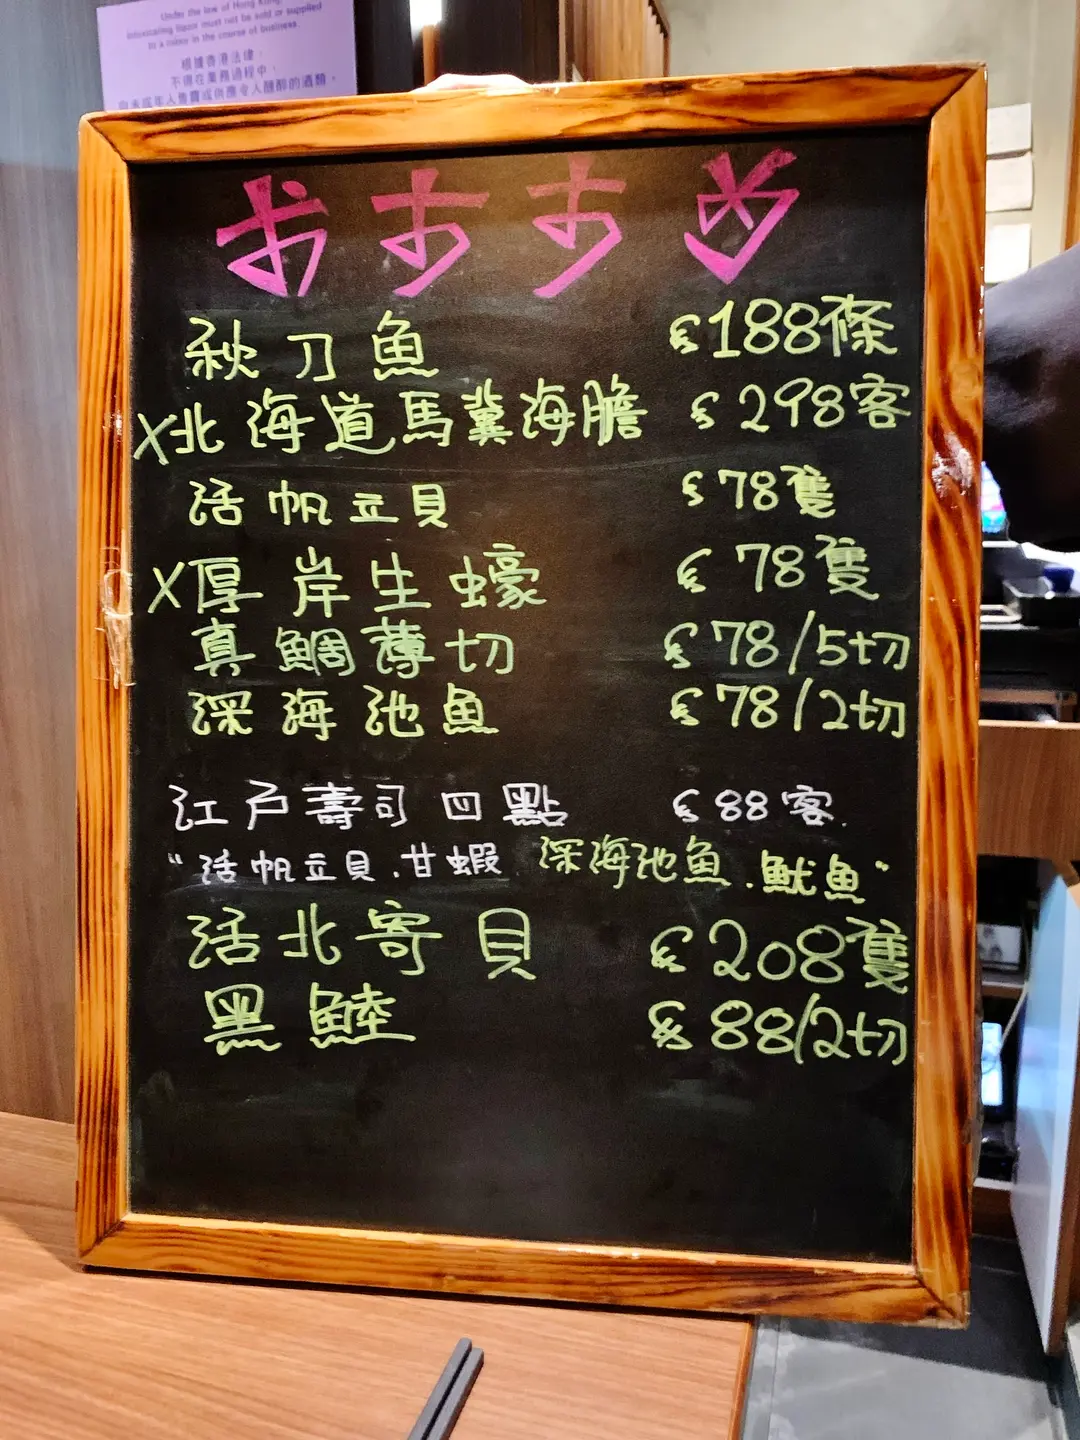 Under the law of Hong Kong,
intoxicating liquor must not be sold or supplied
to a minor in the course of business.
根據香港法律，
不得在業務過程中，
向未成年人售賣或供應令人醺醉的酒類。
おすすめ
秋刀魚 $188條
X北海道馬糞海膽 $298客
活帆立貝 $78隻
X厚岸生蠔 $78隻
真鯛薄切 $78/5切
深海池魚 $78/2切
江戸壽司四點 $88客
"活帆立貝.甘蝦 深海池魚.魷魚"
活北寄貝 $208隻
黑鯥 $88/2切